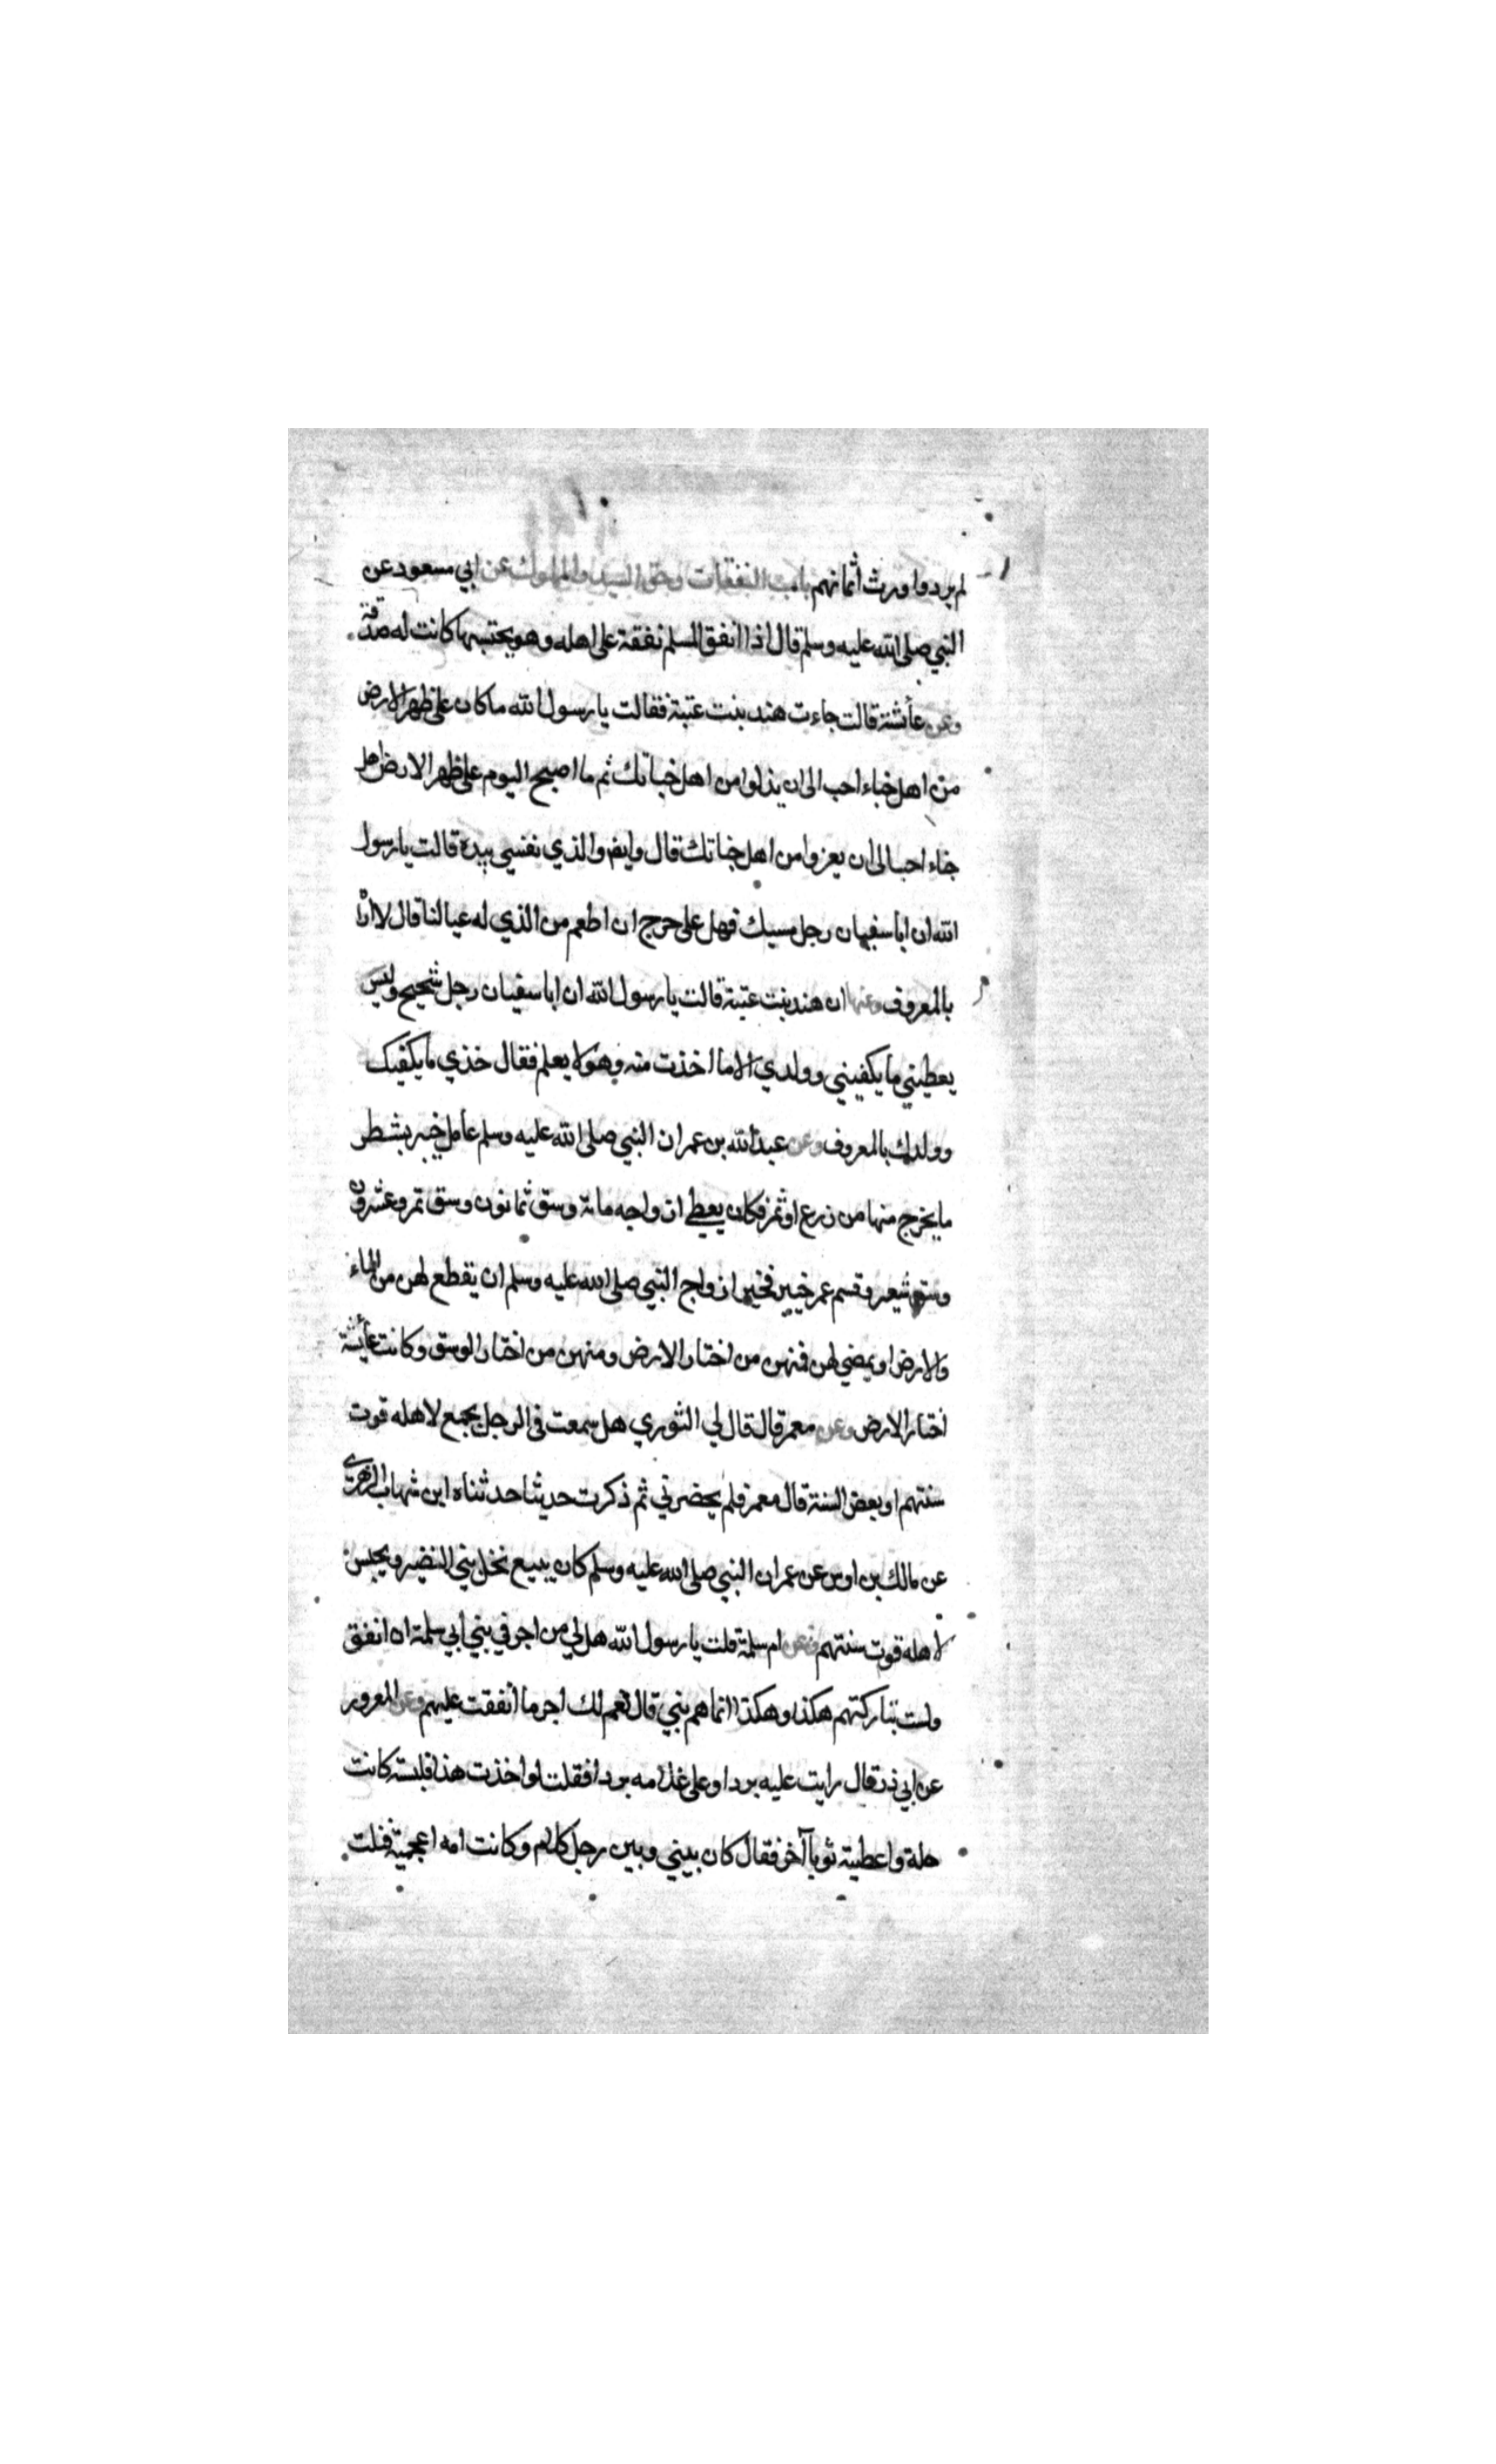 لم يردوا ورث أثمانهم باب النفقات وحق السيد والمملوك عن ابي مسعود عن
النبي صلى الله عليه وسلم قال اذا انفق المسلم نفقة على اهله وهو يحتسبها كانت له صدقة
وعن عائشة قالت جاءت هند بنت عتبة فقالت يا رسول الله ما كان على ظهر الارض
من اهل خباء احب الى ان يذلوا من اهل خبائك ثم ما اصبح اليوم على ظهر الارض اهل
خباء احب الى ان يعزوا من اهل خبائك قال وايضا والذي نفسي بيده قالت يا رسول
الله ان ابا سفيان رجل مسيك فهل على حرج ان اطعم من الذي له عيالنا قال لا الا
بالمعروف وعنها ان هند بنت عتبة قالت يا رسول الله ان ابا سفيان رجل شحيح وليس
يعطيني ما يكفيني وولدي الا ما اخذت منه وهو لا يعلم فقال خذي ما يكفيك
وولدك بالمعروف وعن عبد الله بن عمر ان النبي صلى الله عليه وسلم عامل خيبر بشطر
ما يخرج منها من زرع او ثمر فكان يعطي ازواجه مائة وسق ثمانون وسق تمر وعشرون
وسق شعير وقسم عمر خيبر فخير ازواج النبي صلى الله عليه وسلم ان يقطع لهن من الماء
والارض او يمضي لهن فمنهن من اختار الارض ومنهن من اختار الوسق وكانت عائشة
اختار الارض وعن معمر قال قال لي الثوري هل سمعت في الرجل يجمع لاهله قوت
سنتهم او بعض السنة قال معمر فلم يحضرني ثم ذكرت حديثا حدثناه ابن شهاب الزهري
عن مالك بن اوس عن عمر ان النبي صلى الله عليه وسلم كان يبيع نخل بني النضير ويحبس
لاهله قوت سنتهم وعن ام سلمة قلت يا رسول الله هل لي من اجر في بني ابي سلمة ان انفق
ولست بتاركتهم هكذا وهكذا انما هم بني قال نعم لك اجر ما انفقت عليهم وعن المعرور
عن ابي ذر قال رايت عليه بردا وعلى غلامه بردا فقلت لو اخذت هذا فلبسته كانت
حلة واعطيته ثوبا آخر فقال كان بيني وبين رجل كلام وكانت امه اعجمية فنلت